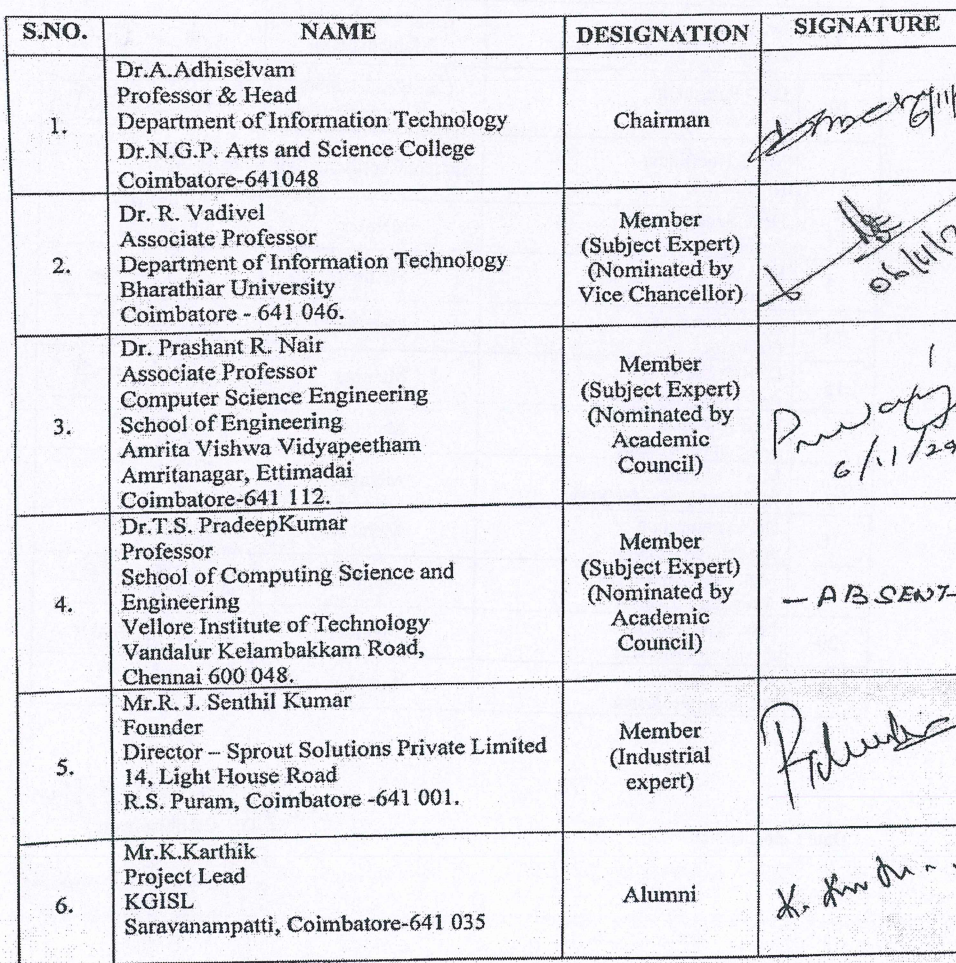 S.NO. NAME DESIGNATION SIGNATURE
1.
Dr.A.Adhiselvam
Professor & Head
Department of Information Technology
Dr.N.G.P. Arts and Science College
Coimbatore-641048
Chairman
2.
Dr. R. Vadivel
Associate Professor
Department of Information Technology
Bharathiar University
Coimbatore - 641 046.
Member
(Subject Expert)
(Nominated by
Vice Chancellor)
06/11/2
3.
Dr. Prashant R. Nair
Associate Professor
Computer Science Engineering
School of Engineering
Amrita Vishwa Vidyapeetham
Amritanagar, Ettimadai
Coimbatore-641 112.
Member
(Subject Expert)
(Nominated by
Academic
Council)
6/11/20
4.
Dr.T.S. PradeepKumar
Professor
School of Computing Science and
Engineering
Vellore Institute of Technology
Vandalur Kelambakkam Road,
Chennai 600 048.
Member
(Subject Expert)
(Nominated by
Academic
Council)
- ABSENT-
5.
Mr.R. J. Senthil Kumar
Founder
Director – Sprout Solutions Private Limited
14, Light House Road
R.S. Puram, Coimbatore -641 001.
Member
(Industrial
expert)
6.
Mr.K.Karthik
Project Lead
KGISL
Saravanampatti, Coimbatore-641 035
Alumni